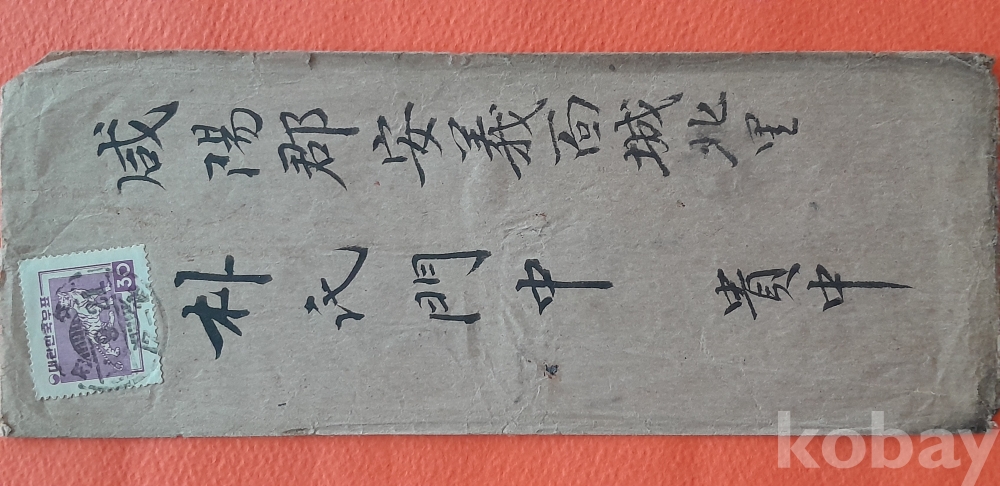 咸陽郡安義面城北里
朴氏門中 貴中
대한민국우표
30
kobay